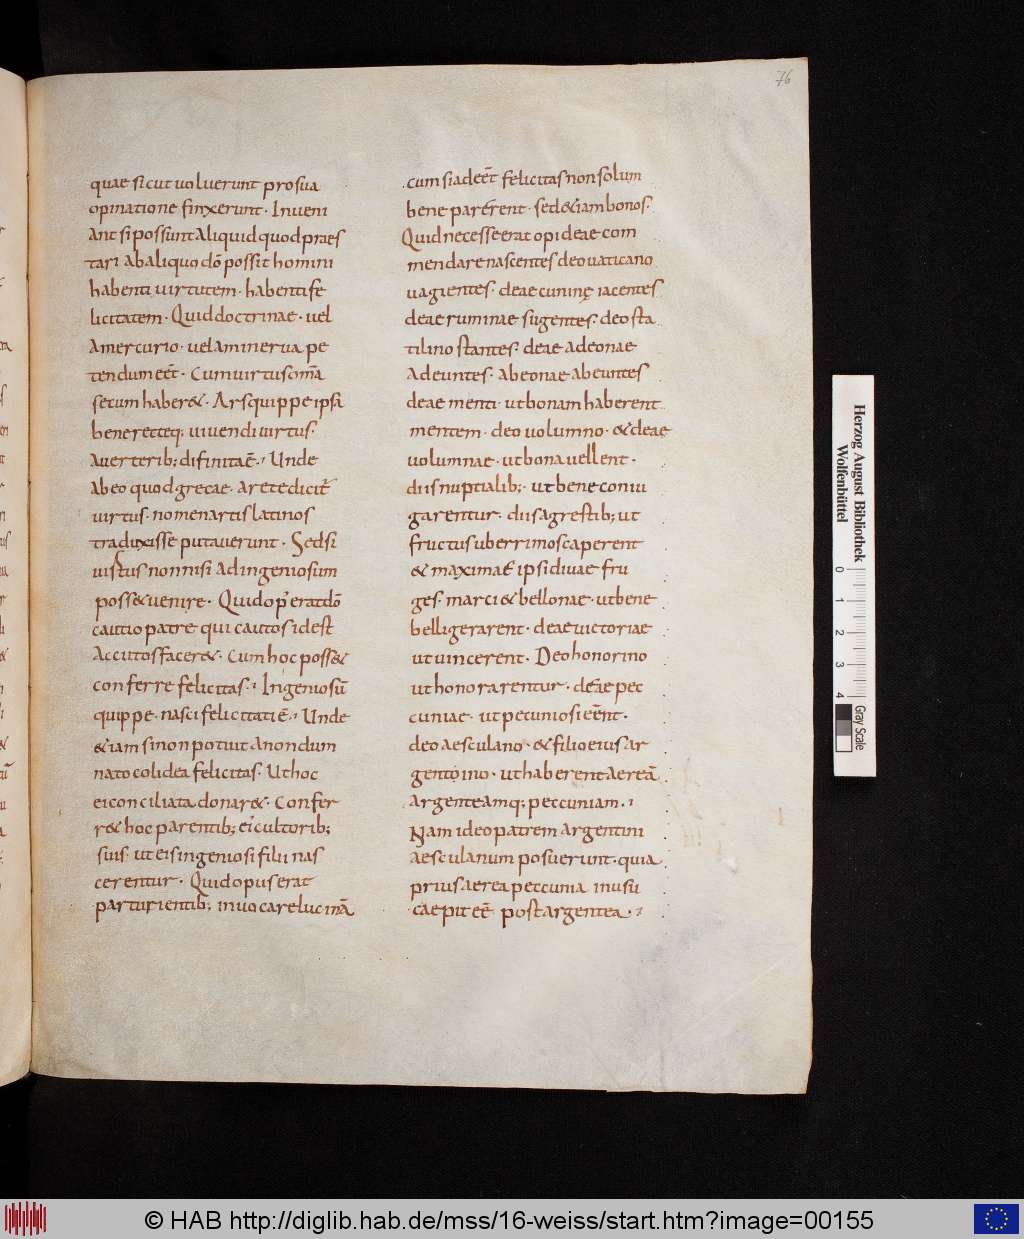 76
quae sicut voluerunt pro sua
opinatione finxerunt · Inveni
ant si possunt aliquid quod praes
tari ab aliquo dō possit homini
habenti virtutem · habenti fe
licitatem · Quid doctrinae · vel
a mercurio · vel a minerva pe
tendum eēt · Cum virtus om̄a
secum haber& · Ars quippe ipsa
bene recteq; vivendi virtus ·
a veterib; difinita ē · Unde
ab eo quod grecae · arete dicit̄
virtus · nomen artis latinos
traduxisse putaverunt · Sed si
virtus non nisi ad ingeniosum
poss& venire · Quid op; erat dō
cautio patre qui cautos id est
accutos facer& · cum hoc poss&
conferre felicitas · Ingeniosū
quippe · nasci felicitati ē · Unde
&iam si non potuit a nondum
nato coli dea felicitas · Ut hoc
ei conciliata donar& · Confer
r& hoc parentib; ei cultorib;
suis · ut eis ingeniosi filii nas
cerentur · Quid opus erat
parturientib; invocare lucinā
cum si adeēt felicitas non solum
bene parerent · sed &iam bonos ·
Quid necesse erat opi deae com
mendare nascentes deo vaticano
vagientes · deae cuninę iacentes
deae ruminae sugentes · deo sta
tilino stantes · deae adeonae
adeuntes · abeonae abeuntes
deae menti · ut bonam haberent
mentem · deo volumno · & deae
volumnae · ut bona vellent ·
diis nuptialib; · ut bene coniu
garentur · diis agrestib; ut
fructus uberrimos caperent
& maximaē ipsi divae fru
ges · marci & bellonae · ut bene
belligerarent · deae victoriae
ut vincerent · Deo honorino
ut honorarentur · deae pec
cuniae · ut pecuniosi eēnt ·
deo aesculano · & filio eius ar
gentoino · ut haberent aereā
argenteamq; peccuniam ·
Nam ideo patrem argentini
aesculanum posuerunt · quia
prius aerea peccunia in usu
caepit eē post argentea ·
Herzog August Bibliothek
Wolfenbüttel
0 1 2 3 4
Gray Scale
© HAB http://diglib.hab.de/mss/16-weiss/start.htm?image=00155